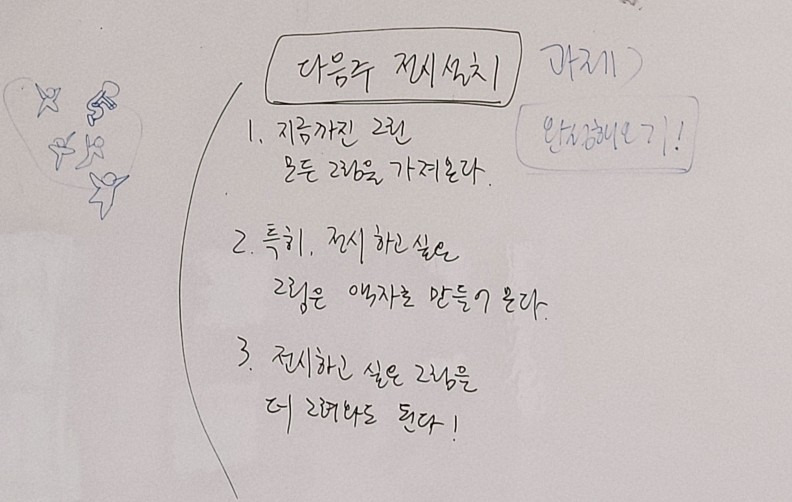 다음주 전시설치
과제)
완성해오기!
1. 지금까진 그린
모든 그림을 가져온다.
2. 특히, 전시하고싶은
그림은 액자로 만들어 온다.
3. 전시하고 싶은 그림을
더 그려와도 된다!